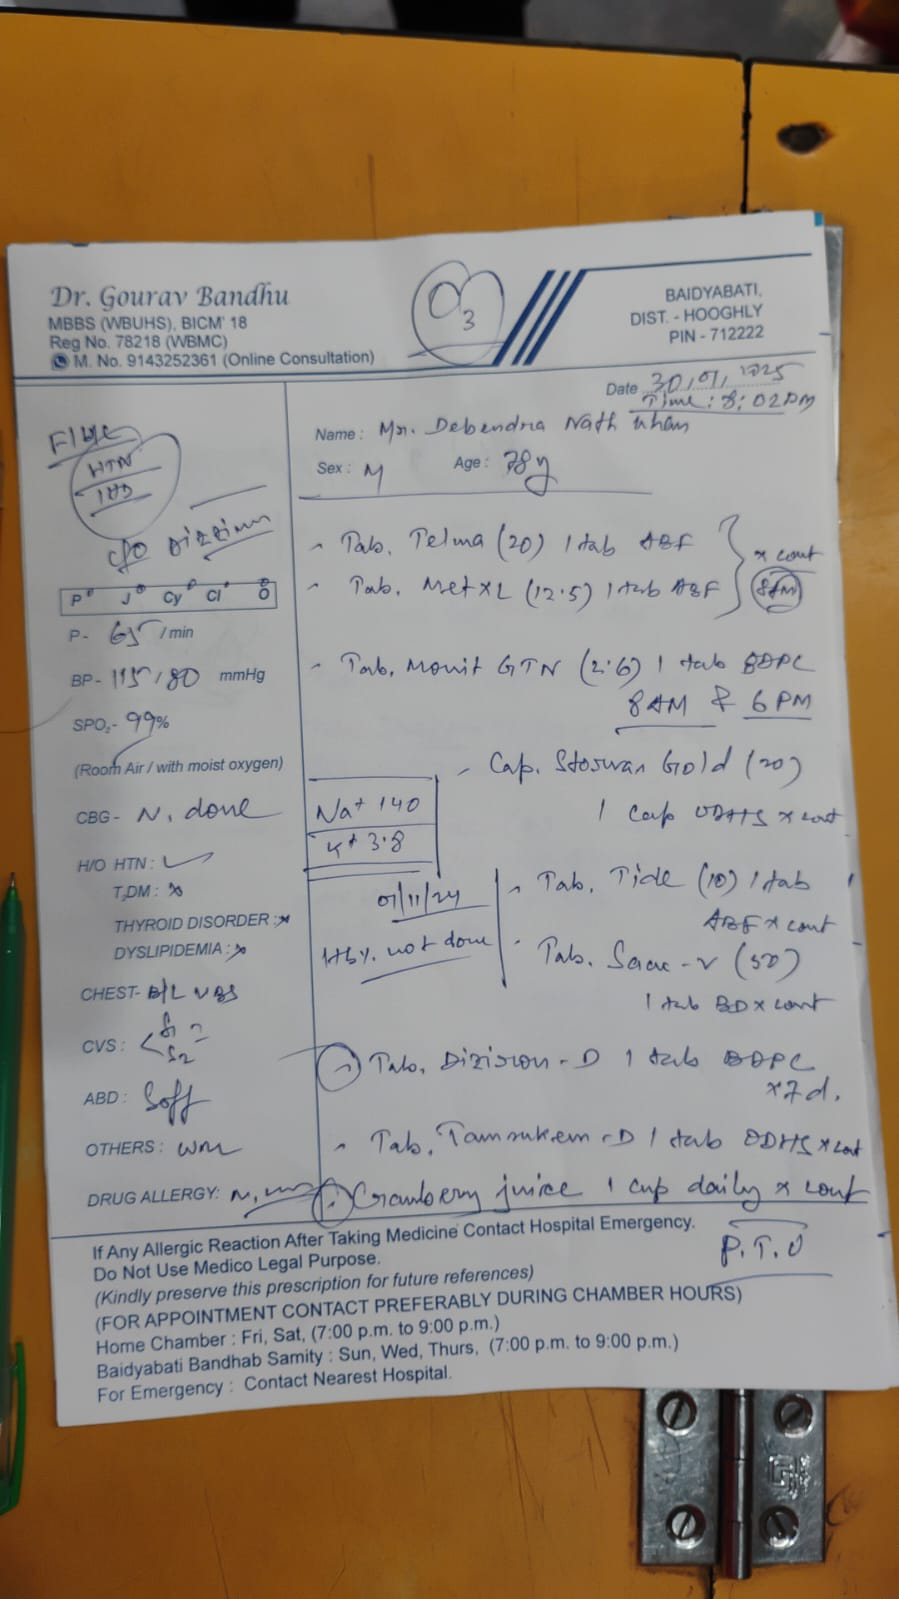 Dr. Gourav Bandhu
MBBS (WBUHS), BICM' 18
Reg No. 78218 (WBMC)
M. No. 9143252361 (Online Consultation)
BAIDYABATI,
DIST. - HOOGHLY
PIN - 712222
Date 30/01/2025
Time: 8:02 PM
Name: Mr. Debendra Nath
Sex: M Age: 78y
HTN
IHD
c/o Dizziness
P J Cy Cl O
P- 65 /min
BP- 115/80 mmHg
SPO₂- 99%
(Room Air / with moist oxygen)
CBG- N. done
H/O HTN: ✓
T₂DM: x
THYROID DISORDER: x
DYSLIPIDEMIA: x
CHEST- B/L VBS
CVS: S1 S2
ABD: Soft
OTHERS:
DRUG ALLERGY:
- Tab. Telma (20) 1 tab ABF
- Tab. Met XL (12.5) 1 tab ABF
x cont
8AM
- Tab. Monit GTN (2.6) 1 tab BDPC
8AM & 6PM
- Cap. Storvas Gold (20)
1 cap ODHS x cont
Na+ 140
K+ 3.8
01/11/24
Hb% not done
- Tab. Tide (10) 1 tab
ABF x cont
(50)
1 tab BD x cont
- Tab. Dizision-D 1 tab BDPC
x 7d.
1 tab ODHS x cont
Cranberry juice 1 cup daily x cont
P.T.O
If Any Allergic Reaction After Taking Medicine Contact Hospital Emergency.
Do Not Use Medico Legal Purpose.
(Kindly preserve this prescription for future references)
(FOR APPOINTMENT CONTACT PREFERABLY DURING CHAMBER HOURS)
Home Chamber : Fri, Sat, (7:00 p.m. to 9:00 p.m.)
Baidyabati Bandhab Samity : Sun, Wed, Thurs, (7:00 p.m. to 9:00 p.m.)
For Emergency : Contact Nearest Hospital.